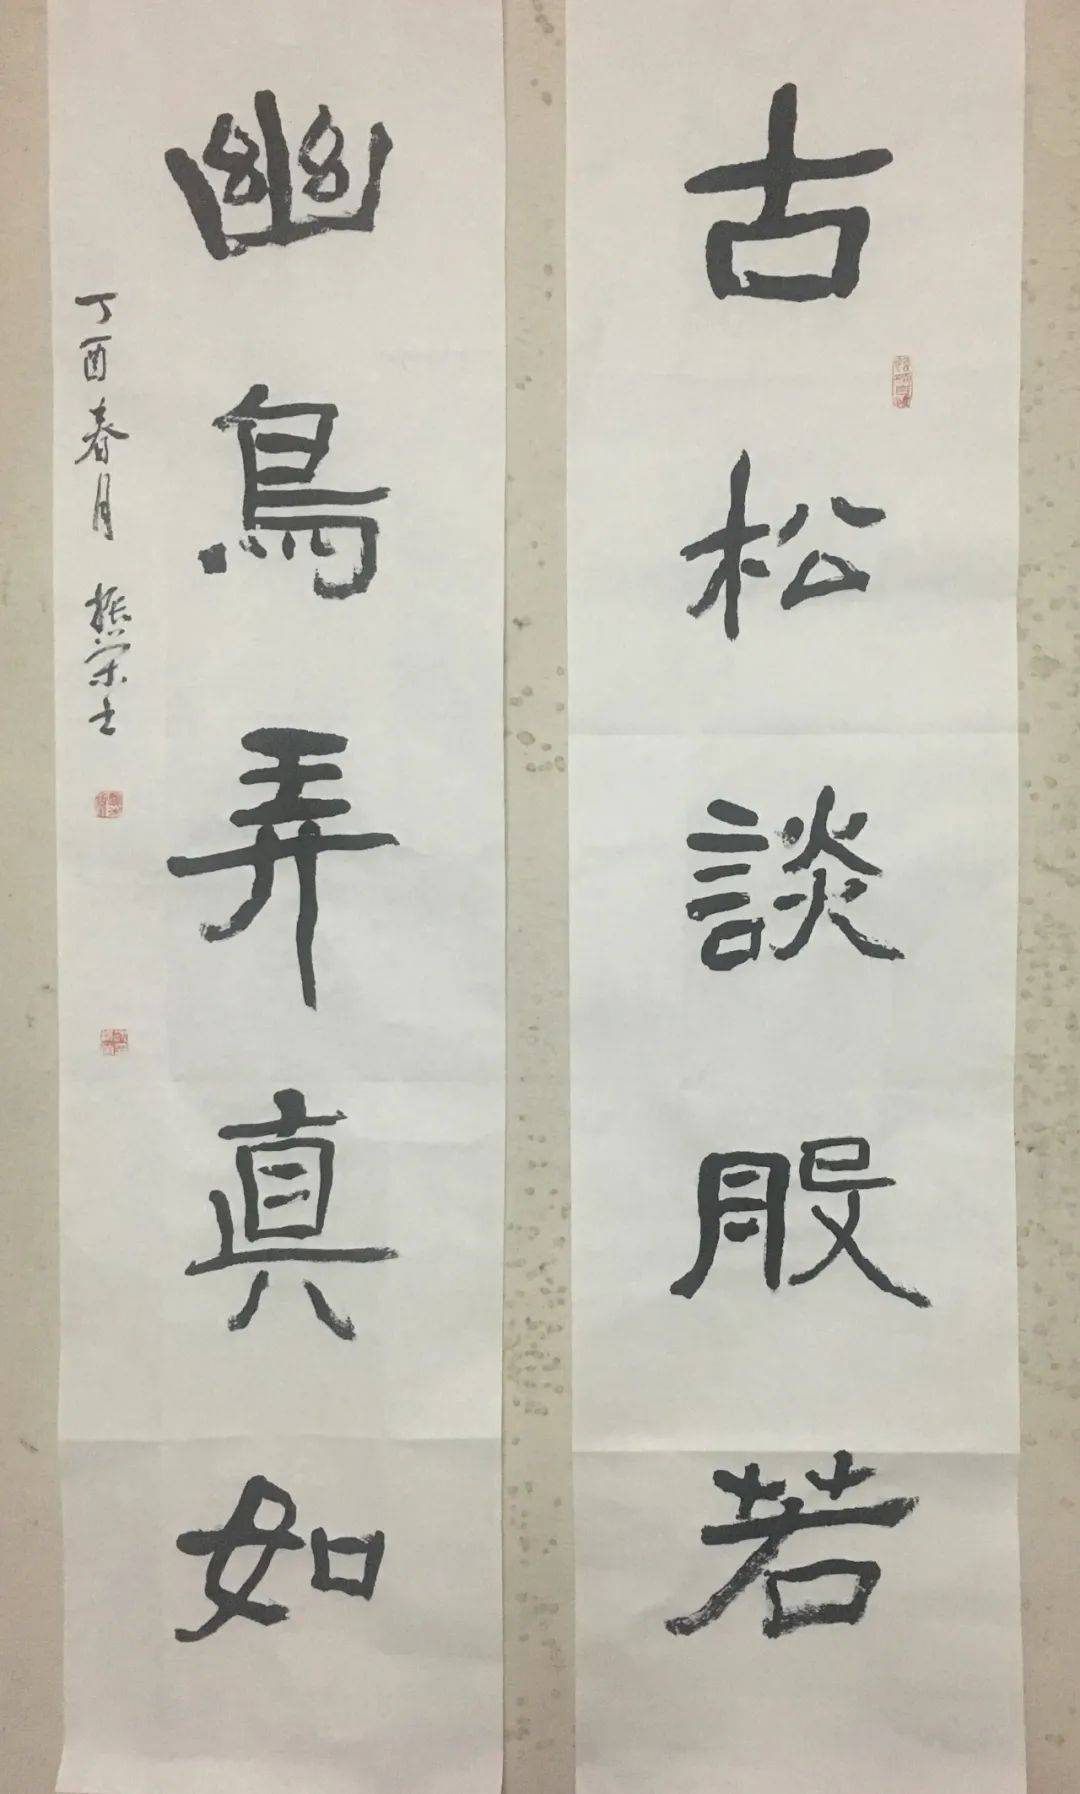 古松談般若
幽鳥弄真如
丁酉春月 振榮書